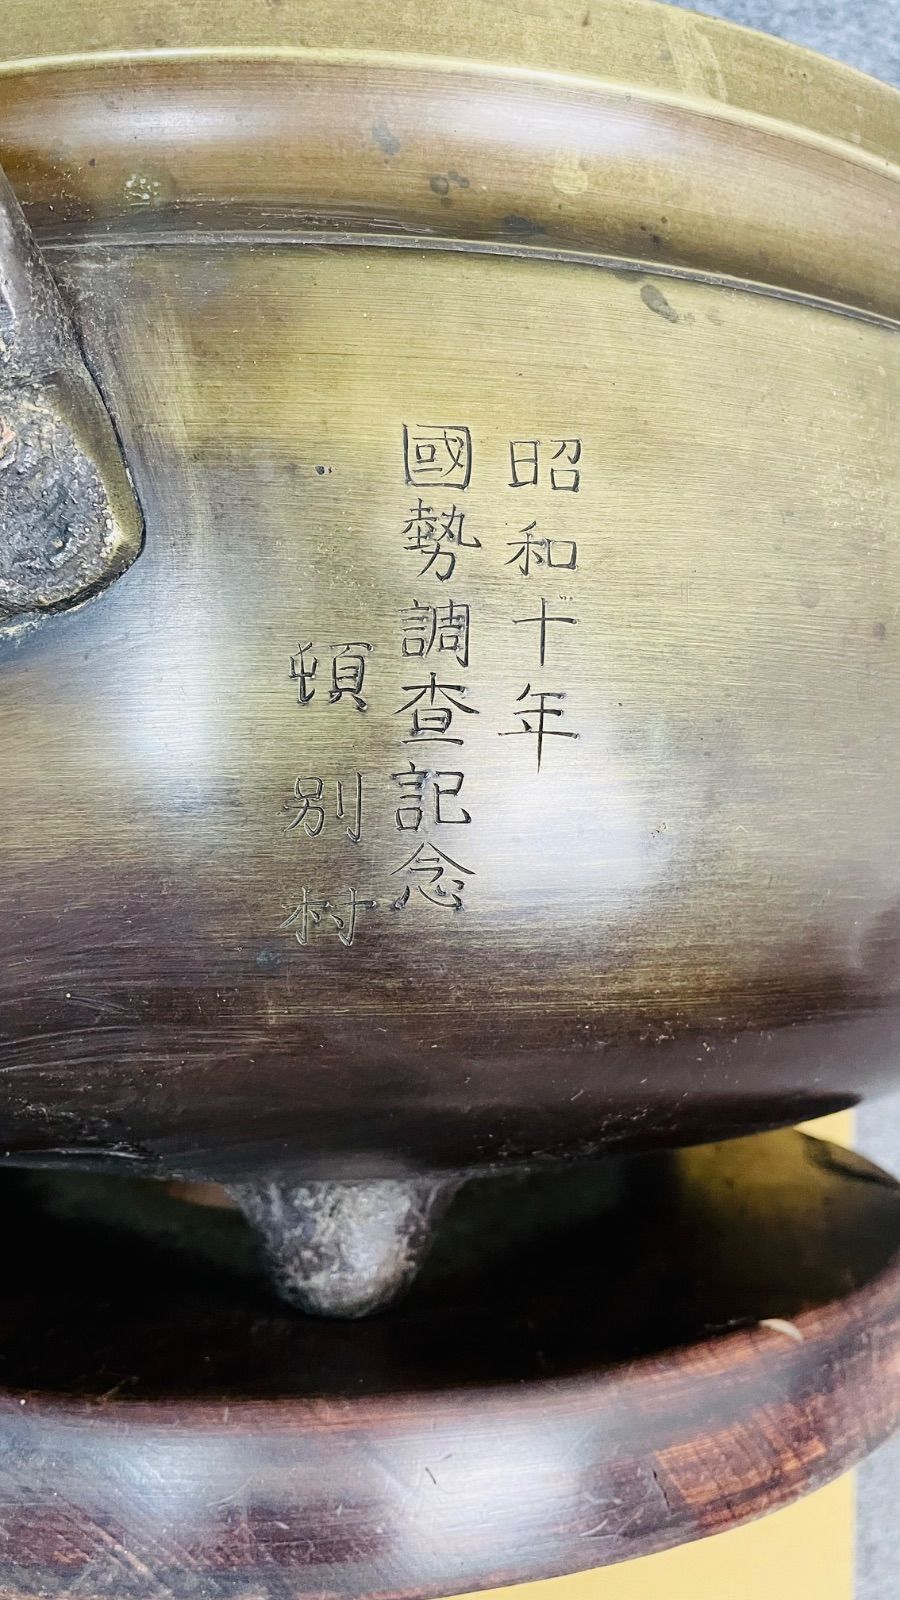 昭和十年
國勢調査記念
頓別村